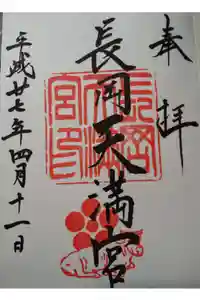 奉拝
長岡天満宮
平成廿七年四月十一日